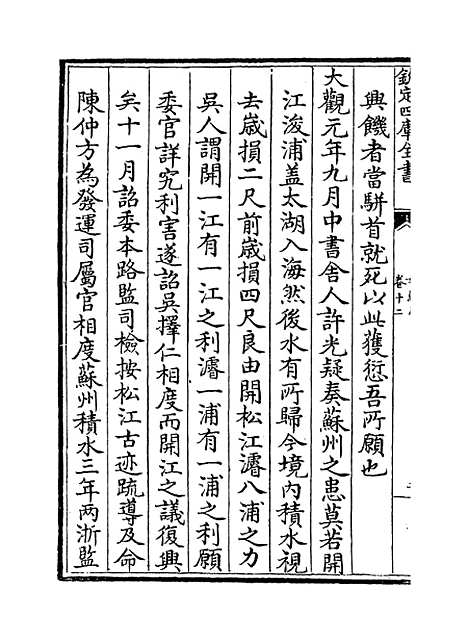 欽定四庫全書
卷十二
興饑者當駢首就死以此獲愆吾所願也
大觀元年九月中書舍人許光疑奏蘇州之患莫若開
江浚浦盖太湖入海然後水有所歸今境内積水視
去嵗損二尺前嵗損四尺良由開松江濬八浦之力
吳人謂開一江有一江之利濬一浦有一浦之利願
委官詳究利害遂詔吳擇仁相度而開江之議復興
矣十一月詔委本路監司檢按松江古迹疏導及命
陳仲方為發運司屬官相度蘇州積水三年兩浙監